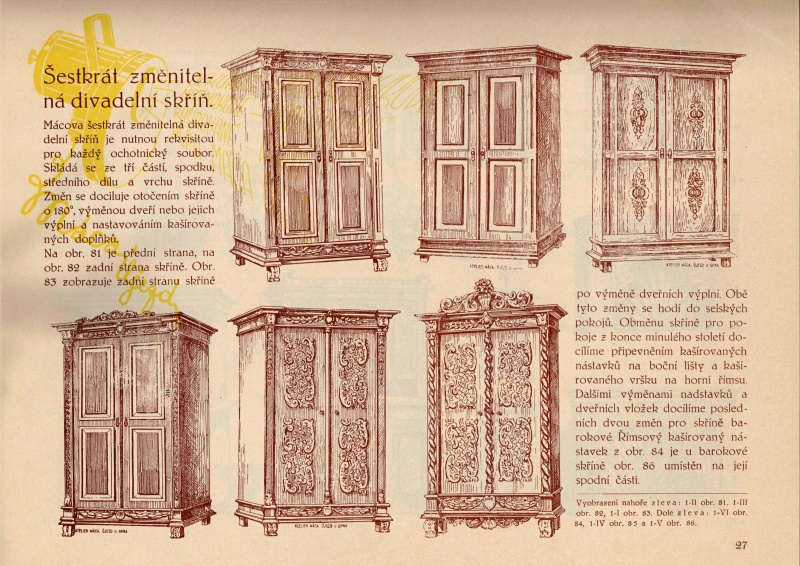 Šestkrát změnitel-
ná divadelní skříň.
Mácova šestkrát změnitelná diva-
delní skříň je nutnou rekvisitou
pro každý ochotnický soubor.
Skládá se ze tří částí, spodku,
středního dílu a vrchu skříně.
Změn se dociluje otočením skříně
o 180°, výměnou dveří nebo jejich
výplní a nastavováním kašírova-
ných doplňků.
Na obr. 81 je přední strana, na
obr. 82 zadní strana skříně. Obr.
83 zobrazuje zadní stranu skříně
po výměně dveřních výplní. Obě
tyto změny se hodí do selských
pokojů. Obměnu skříně pro po-
koje z konce minulého století do-
cílíme připevněním kašírovaných
nástavků na boční lišty a kaší-
rovaného vršku na horní římsu.
Dalšími výměnami nadstavků a
dveřních vložek docílíme posled-
ních dvou změn pro skříně ba-
rokové. Římsový kašírovaný ná-
stavek z obr. 84 je u barokové
skříně obr. 86 umístěn na její
spodní části.
Vyobrazení nahoře sleva: 1-II obr. 81, 1-III
obr. 82, 1-I obr. 83. Dole sleva: 1-VI obr.
84, 1-IV obr. 85 a 1-V obr. 86.
ATELIER MÁCA, ÚJEZD U BRNA
ATELIER MÁCA, ÚJEZD U BRNA
ATELIER MÁCA, ÚJEZD U BRNA
ATELIER MÁCA, ÚJEZD U BRNA
ATELIER MÁCA, ÚJEZD U BRNA
27